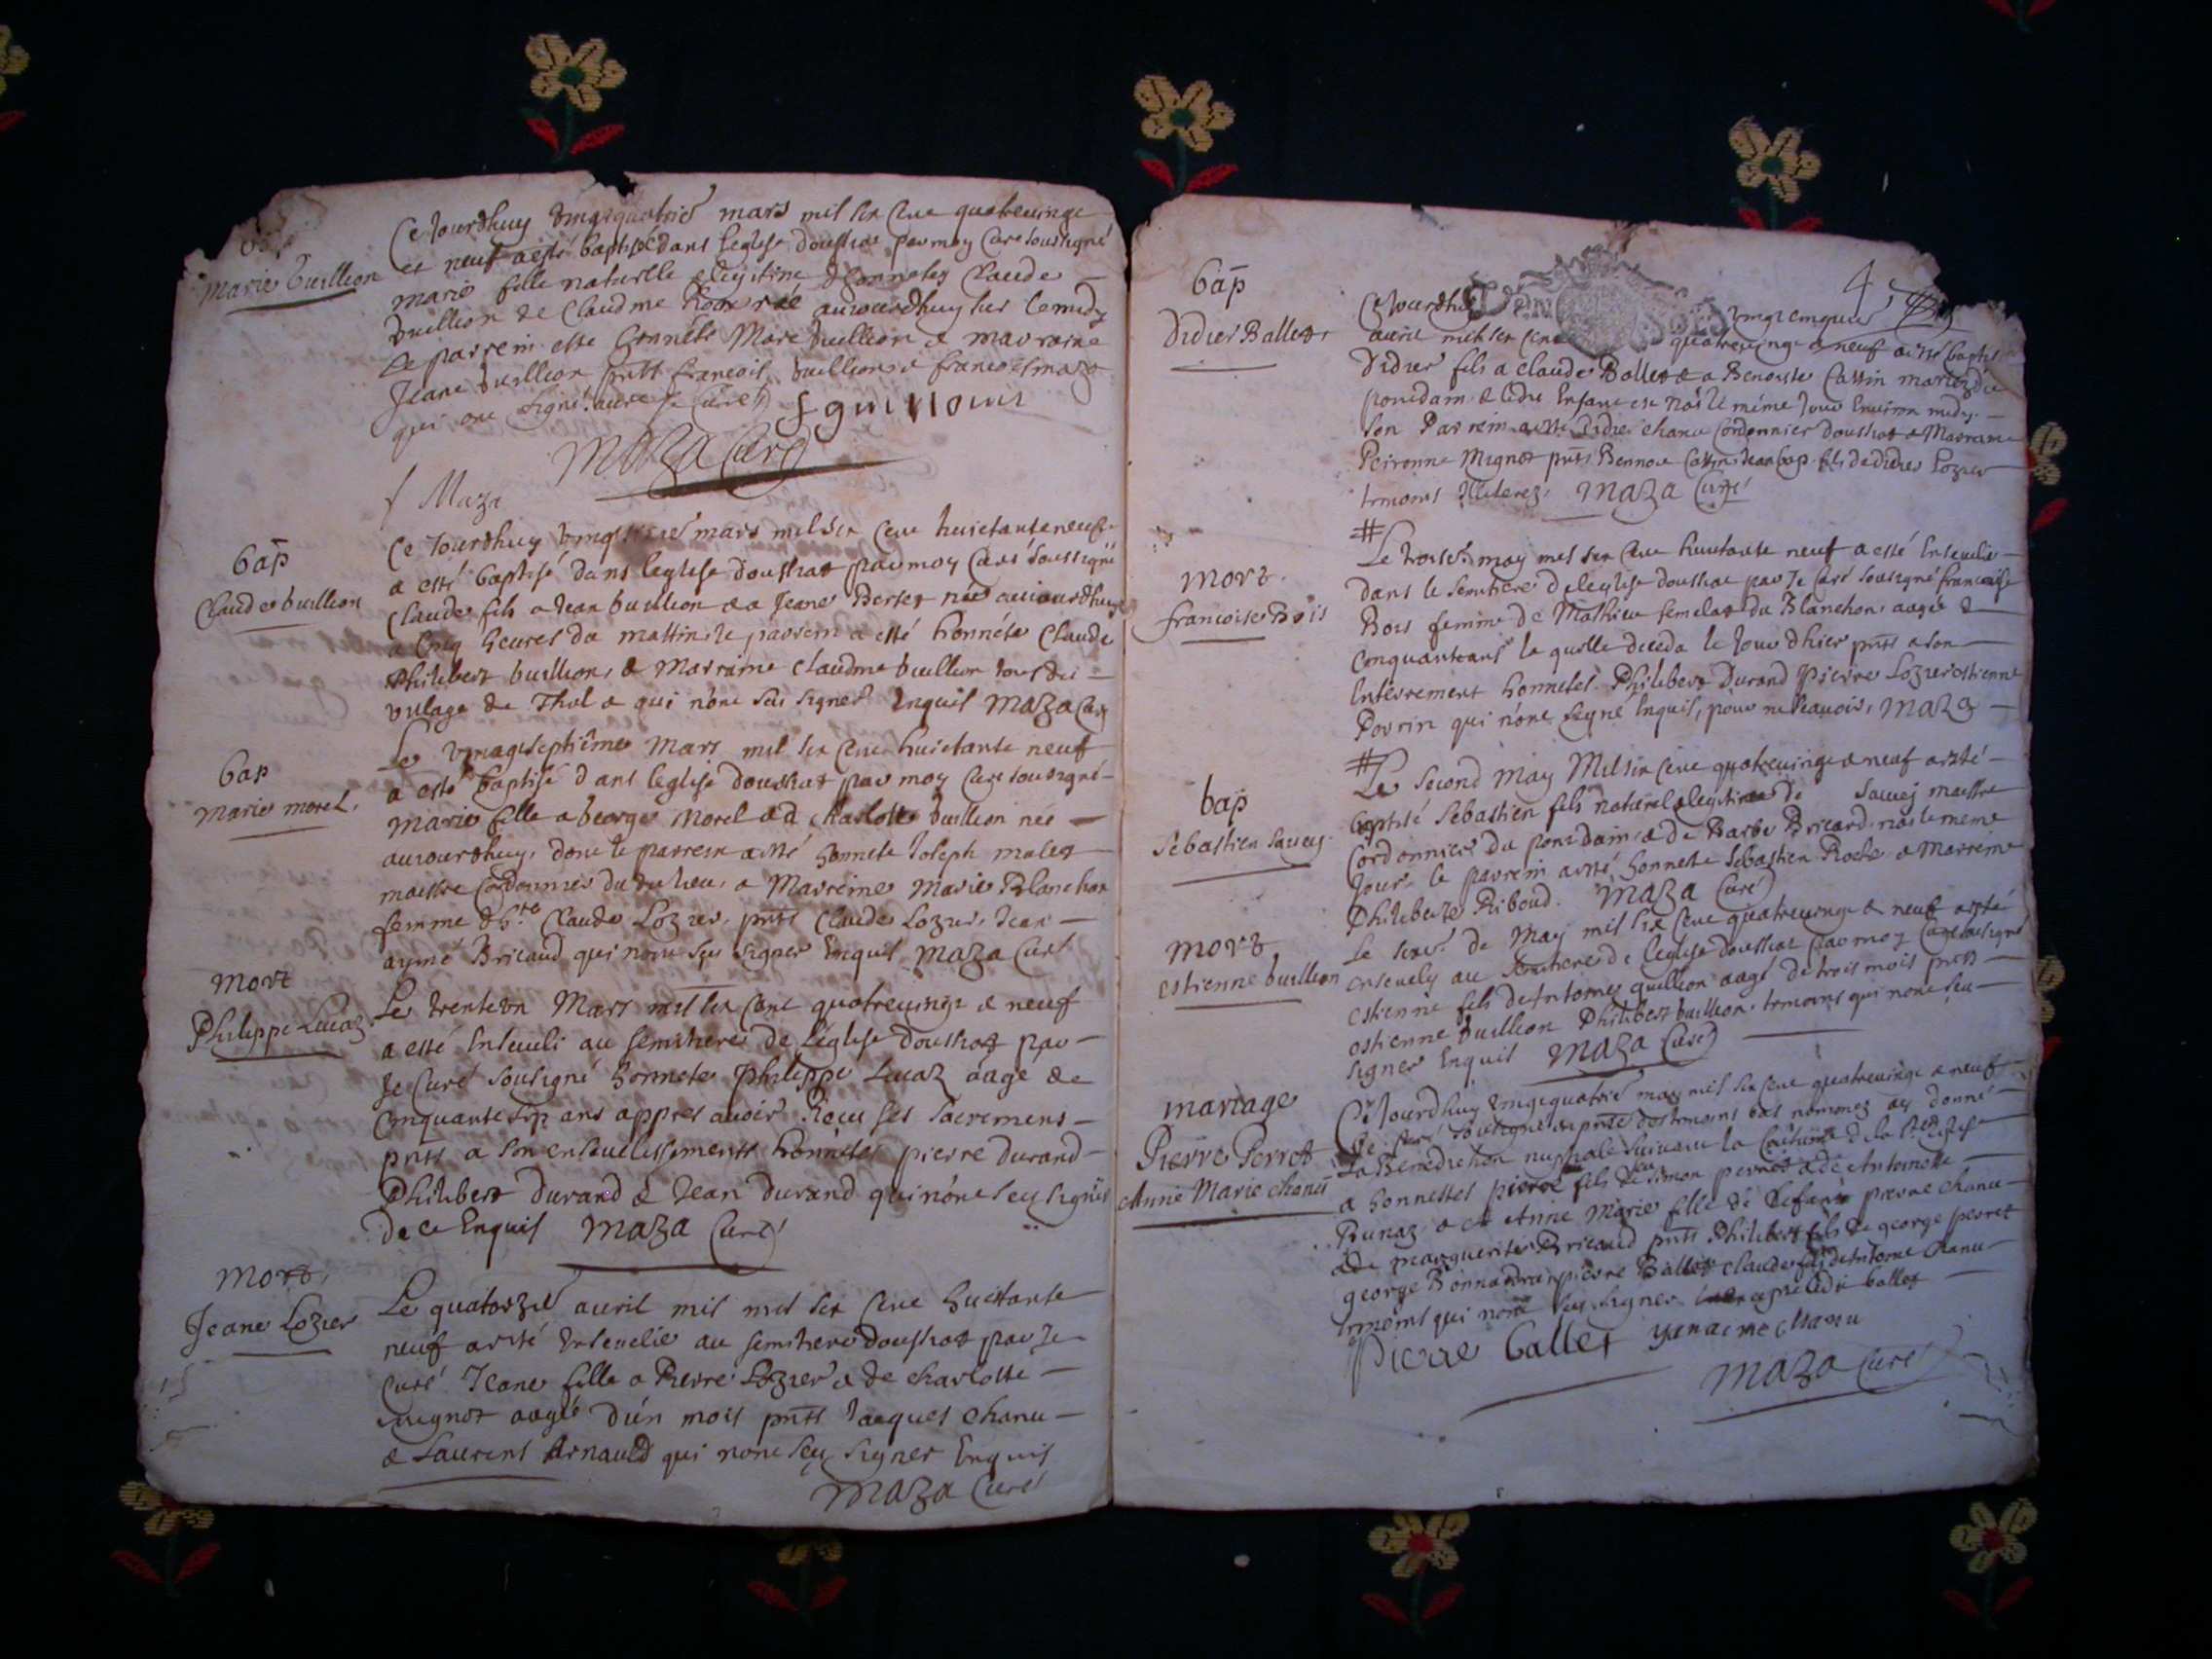 Marie buillion
Ce Jourdhuy vingtquatrie mars mil six cent quatrevingt
et neuf a esté baptisé dans leglise doussiat par moy Curé soussigné
marie fille naturelle & legitime d'honnetes Claude
buillion & de Claudine née aujourdhuy sur le midy
Le parrein este honnete Marc buillion & marraine
Jeane buillion pnts francois buillion & francois maza
qui ont signé avec Je Curé
maza Curé
f Maza
bap
Claude buillion
Ce Jourdhuy mars mil six cent huictante neuf
a esté baptisé dans leglise doussiat par moy Curé soussigné
Claude fils a Jean buillion & a Jeane Berset né aujourdhuy
a cinq heures du mattin le parrein a esté honnéte Claude
Philibert buillion, & Marraine Claudine buillion tous du
vilage de Thol & qui n'ont seu signer Enquis maza Curé
bap
marie morel
Le vingtseptiéme Mars mil six cent huictante neuf
a esté baptisé dans leglise doussiat par moy Curé sousigné
marie fille a George morel & a Charlotte buillion née
aujourdhuy, dont le parrein a esté honnete Joseph malet
maistre Cordonnier dudit lieu, & Marreine Marie Blanchon
femme d'h.te Claude Lozier, pnts Claude Lozier, Jean
aymé Bricaud qui n'ont seu signer Enquis maza Curé
mort
Philippe Lucaz
Le trente un Mars mil six cent quatrevingt & neuf
a esté Enseveli au semitiere de l'église doussiat par
Je Curé sousigné honnete philippe Lucaz aagé de
cinquante sep ans appres avoir Receu ses sacremens
pnts a son ensevelissements honnétes pierre durand
Philibert durand & Jean durand qui n'ont seu signer
de ce Enquis maza Curé
mort
Jeane Lozier
Le quatorzie avril mil mil six cent huictante
neuf a esté Ensevelie au semitiere doussiat par Je
Curé Jeane fille a Pierre Lozier & de Charlotte
mignot aagée d'un mois pnts Jacques Chanu
& Laurent Arnauld qui n'ont seu signer Enquis
maza Curé
4
bap
didier Ballet
Ce Jourdhuy vingt cinquie
avril mil six cent quatrevingt & neuf a esté baptisé
Didier fils a Claude Ballet & a Benoiste Cassin mariez du
pontdain & ledit Enfant est nais le méme Jour Environ midy
son Parrein a esté didier Chanu Cordonnier doussiat & Marraine
Peironne Mignot pnts Bennoit Cassin Jean bap. fils de didier Lozier
temoins Illiterez, maza Curé
mort
francoise Bois
# Le may mil six cent huictante neuf a esté Ensevelie
dans le semitiere de leglise doussiat par Je Curé sousigné francoise
Bois femme de Mathieu semelat du Blanchon, aagée de
cinquanteans la quelle deceda le Jour d'hier pnts a son
Enterrement honnetes Philibert Durand Pierre Lozier estienne
Porrin qui n'ont signé Enquis, pour ne scavoir, maza
bap
Sebastien
# Le second May Mil six cent quatrevingt & neuf a esté
baptisé Sebastien fils naturel & legitime de maistre
Cordonnier du pontdain & de Barbe Bricard nais le meme
Jour, le parrein a esté honneste Sebastien Roche & Marreine
Philiberte Riboud. maza Curé
mort
estienne buillion
Le de May mil six cent quatrevingt & neuf a esté
ensevely au semitiere de leglise doussiat par moy Curé sousigné
estienne fils de Antoine guillion aagé de trois mois pnts
estienne buillion Philibert buillion, temoins qui n'ont seu
signer Enquis maza Curé
mariage
Pierre Perret
Anne Marie chanu
Ce Jourdhuy vingtquatrie may mil six cent quatrevingt & neuf
Je Curé sousigné en pnce des temoins bas nommez ay donné
La Benediction nuptiale suivant la Coutume de la ste Eglise
a honnestes pierre fils de feu simon perret & de Antoinette
Runaz & a Anne Marie fille de deffunt pierre Chanu
& de marguerite Bricaud pnts Philibert fils de george perret
george Bonnardin pierre Ballet claude fils de Antoine Chanu
temoins qui n'ont seu signer ledit ballet
Pierre ballet chanu
maza Curé